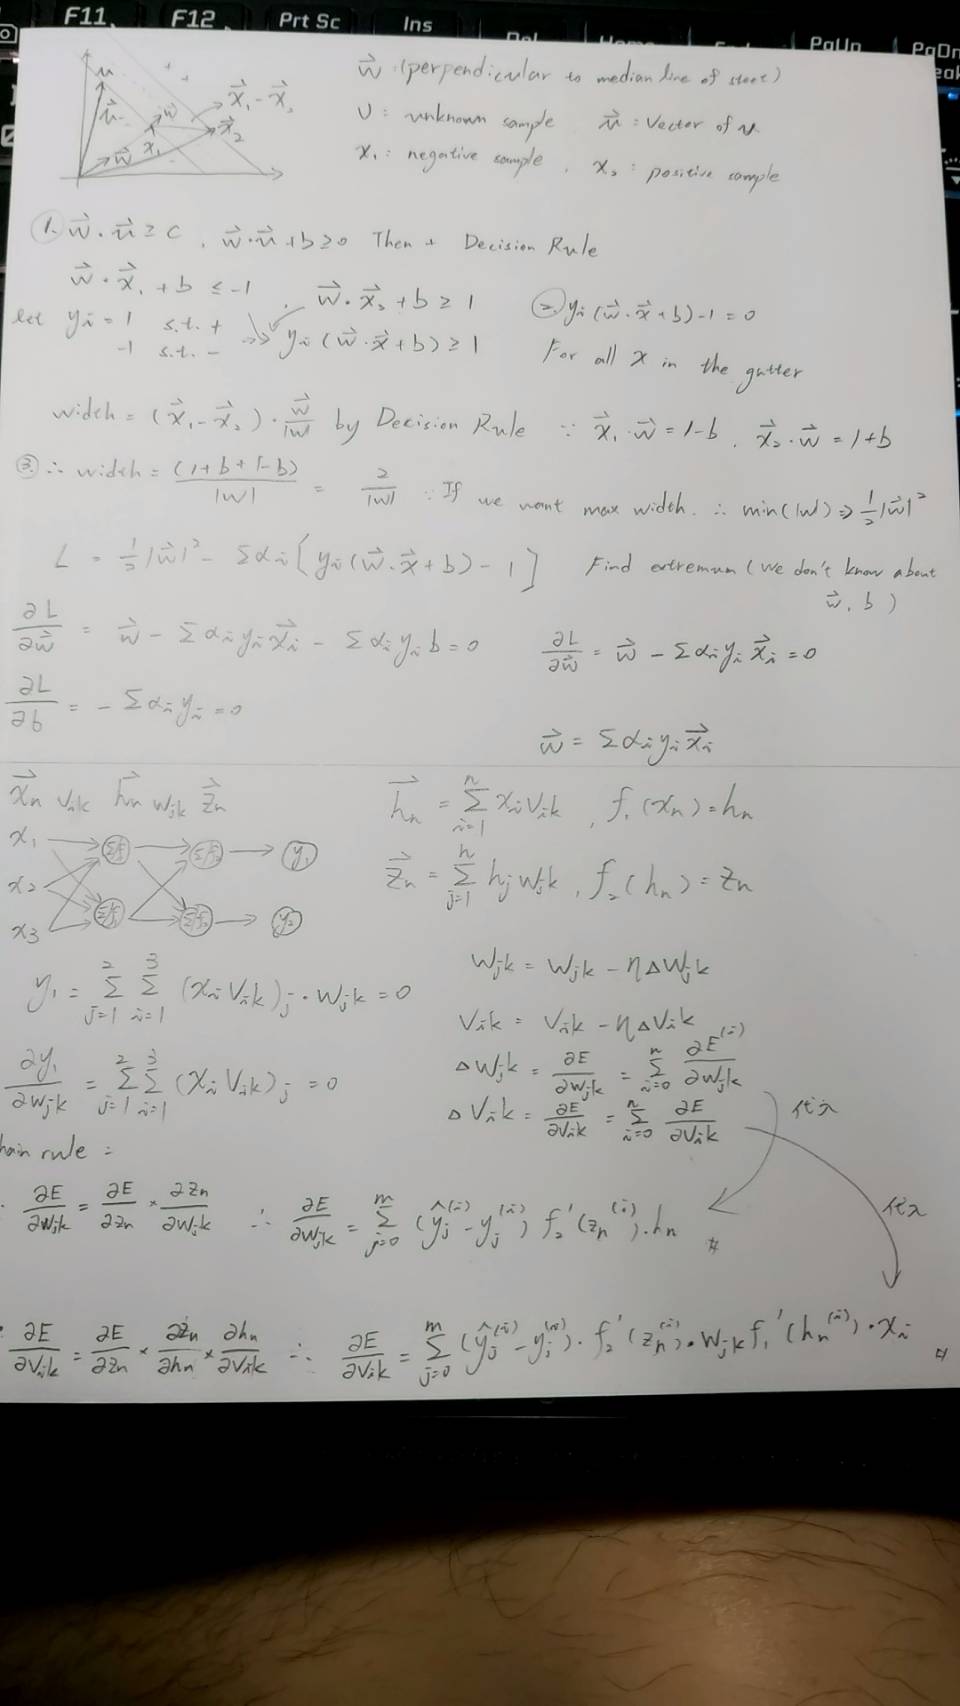 F11 F12 Prt Sc Ins Del Home PgUp PgDn
w⃗ : (perpendicular to median line of street)
U : unknown sample u⃗ : Vector of u
x₁ : negative sample , x₂ : positive sample
u u⃗ w⃗ x⃗₁ - x⃗₂ x₁ x⃗₂ w⃗
1. w⃗ · u⃗ ≥ c , w⃗ · u⃗ + b ≥ 0 Then + Decision Rule
w⃗ · x⃗₁ + b ≤ -1 , w⃗ · x⃗₂ + b ≥ 1
② yᵢ (w⃗ · x⃗ + b) - 1 = 0
let yᵢ = 1 s.t. +
-1 s.t. -
yᵢ (w⃗ · x⃗ + b) ≥ 1
For all x in the gutter
width = (x⃗₁ - x⃗₂) · w⃗/|w| by Decision Rule ∵ x⃗₁ · w⃗ = 1-b , x⃗₂ · w⃗ = 1+b
③ ∴ width = (1+b+1-b)/|w| = 2/|w| ∵ If we want max width. ∴ min(|w|) ⇒ ½|w⃗|²
L = ½|w⃗|² - Σαᵢ[yᵢ(w⃗ · x⃗ + b) - 1] Find extremum (We don't know about
w⃗, b)
∂L/∂w⃗ = w⃗ - Σαᵢyᵢx⃗ᵢ - Σαᵢyᵢb = 0
∂L/∂w⃗ = w⃗ - Σαᵢyᵢx⃗ᵢ = 0
∂L/∂b = - Σαᵢyᵢ = 0
w⃗ = Σαᵢyᵢx⃗ᵢ
x⃗n Vik h⃗n Wjk z⃗n
h⃗n = Σ(i=1..n) xᵢVik , f₁(xn) = hn
x₁ Σf₁ Σf₂ y₁
z⃗n = Σ(j=1..n) hjWjk , f₂(hn) = zn
x₂
x₃ Σf₁ Σf₂ y₂
Wjk = Wjk - ηΔWjk
y₁ = Σ(j=1..2) Σ(i=1..3) (xᵢVik)j · Wjk = 0
Vik = Vik - ηΔVik
∂y₁/∂Wjk = Σ(j=1..2) Σ(i=1..3) (xᵢVik)j = 0
ΔWjk = ∂E/∂Wjk = Σ(i=0..n) ∂E⁽ⁱ⁾/∂Wjk
代入
ΔVik = ∂E/∂Vik = Σ(i=0..n) ∂E/∂Vik
hain rule :
∂E/∂Wjk = ∂E/∂zn × ∂zn/∂Wjk ∴ ∂E/∂Wjk = Σ(j=0..m) (ŷj⁽ⁱ⁾ - yj⁽ⁱ⁾) f₂'(zn⁽ⁱ⁾) · hn #
代入
∂E/∂Vik = ∂E/∂zn × ∂zn/∂hn × ∂hn/∂Vik ∴ ∂E/∂Vik = Σ(j=0..m) (ŷj⁽ⁱ⁾ - yj⁽ⁱ⁾) · f₂'(zn⁽ⁱ⁾) · Wjk f₁'(hn⁽ⁱ⁾) · xᵢ #